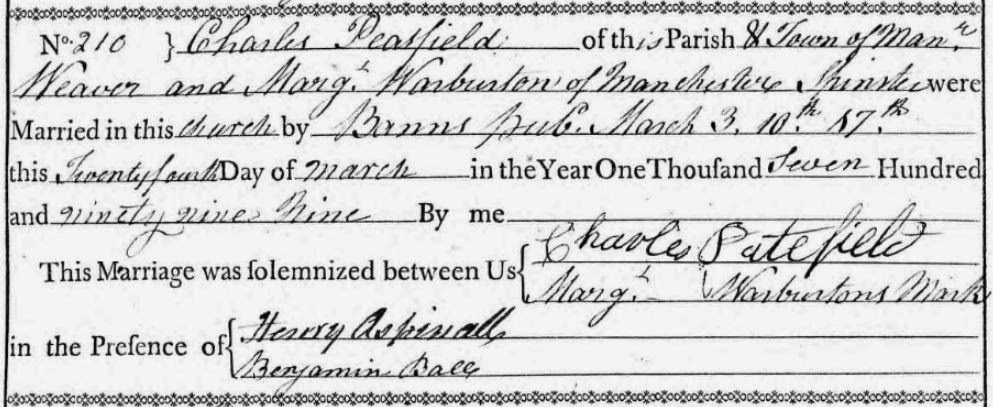 No. 210 } Charles Peasfield of this Parish & Town of Manr.
Weaver and Margt. Warburton of Manchester Spinster were
Married in this church by Banns pub. March 3. 10th 17th
this Twenty fourth Day of march in the Year One Thouſand Seven Hundred
and ninety nine Nine By me
This Marriage was ſolemnized between Us { Charles Patefield
Margt. Warburtons Mark
in the Preſence of { Henry Aspinall
Benjamin Ball